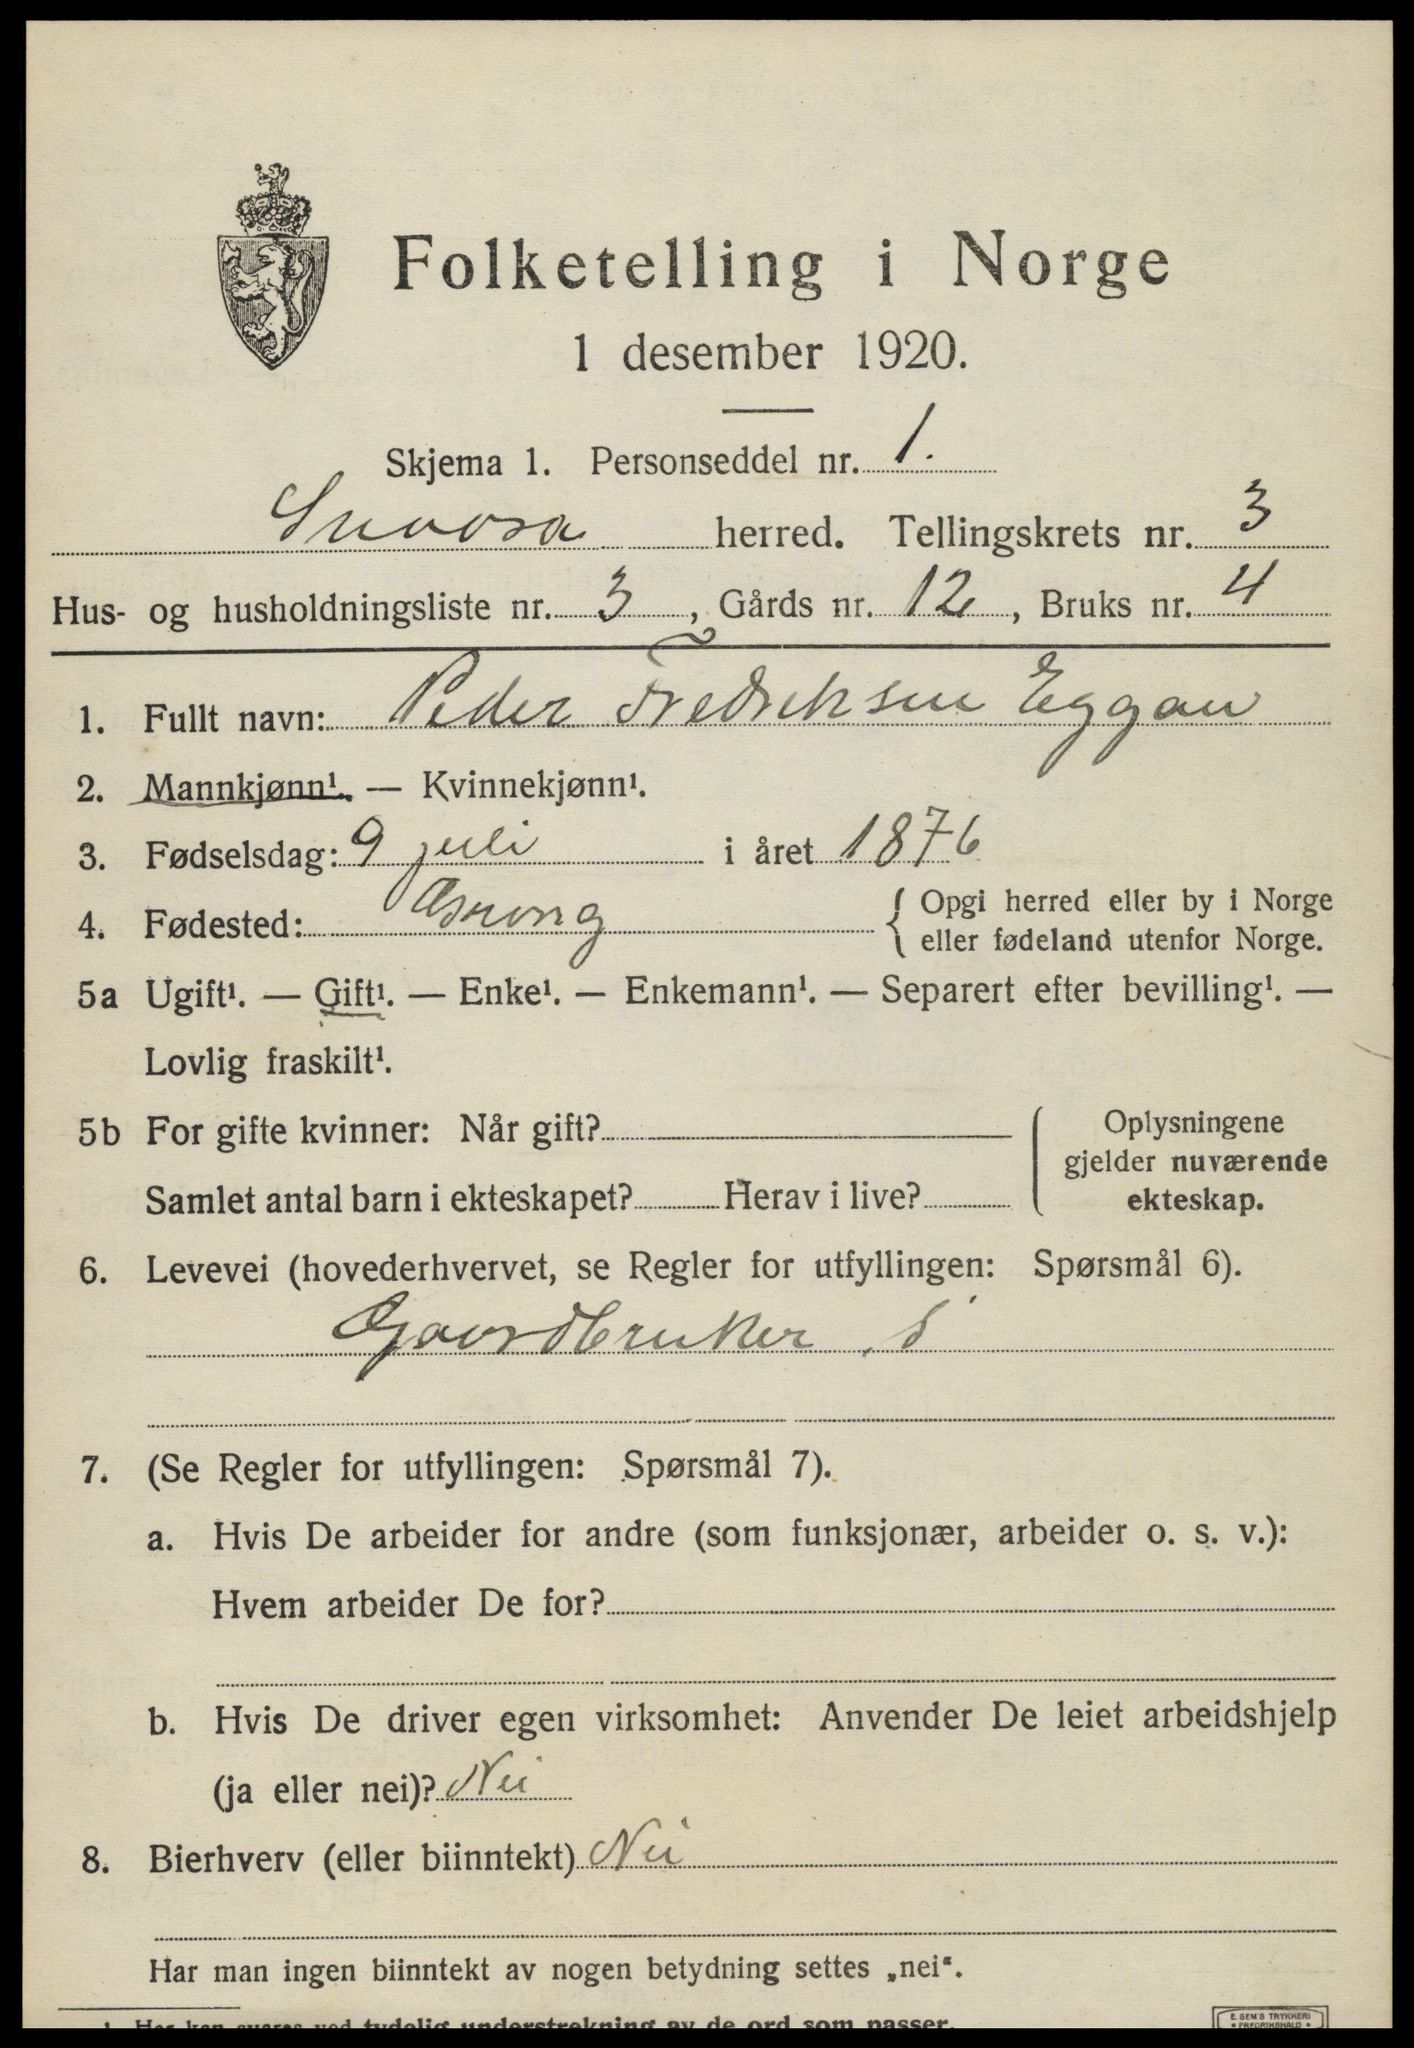 Folketelling i Norge
1 desember 1920.
Skjema 1. Personseddel nr. 1.
Snaasa herred. Tellingskrets nr. 3
Hus- og husholdningsliste nr. 3, Gårds nr. 12, Bruks nr. 4
1. Fullt navn: Peder Fredriksen Eggan
2. Mannkjønn¹. — Kvinnekjønn¹.
3. Fødselsdag: 9 juli i året 1876
4. Fødested: Grong { Opgi herred eller by i Norge
eller fødeland utenfor Norge.
5a Ugift¹. — Gift¹. — Enke¹. — Enkemann¹. — Separert efter bevilling¹. —
Lovlig fraskilt¹.
5b For gifte kvinner: Når gift?
Samlet antal barn i ekteskapet? Herav i live?
Oplysningene
gjelder nuværende
ekteskap.
6. Levevei (hovederhvervet, se Regler for utfyllingen: Spørsmål 6).
Gaardbruker. S
7. (Se Regler for utfyllingen: Spørsmål 7).
a. Hvis De arbeider for andre (som funksjonær, arbeider o. s. v.):
Hvem arbeider De for?
b. Hvis De driver egen virksomhet: Anvender De leiet arbeidshjelp
(ja eller nei)? Nei
8. Bierhverv (eller biinntekt) Nei
Har man ingen biinntekt av nogen betydning settes „nei“.
¹ Her kan svares ved tydelig understrekning av de ord som passer.
E. SEM'S TRYKKERI
• FREDRIKSHALD •